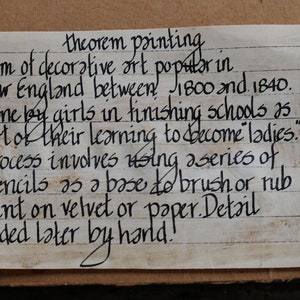 theorem painting
m of decorative art popular in
w England between 1800 and 1840.
ne by girls in finishing schools as
t of their learning to become "ladies."
ocess involves using a series of
encils as a base to brush or rub
int on velvet or paper. Detail
ded later by hand.